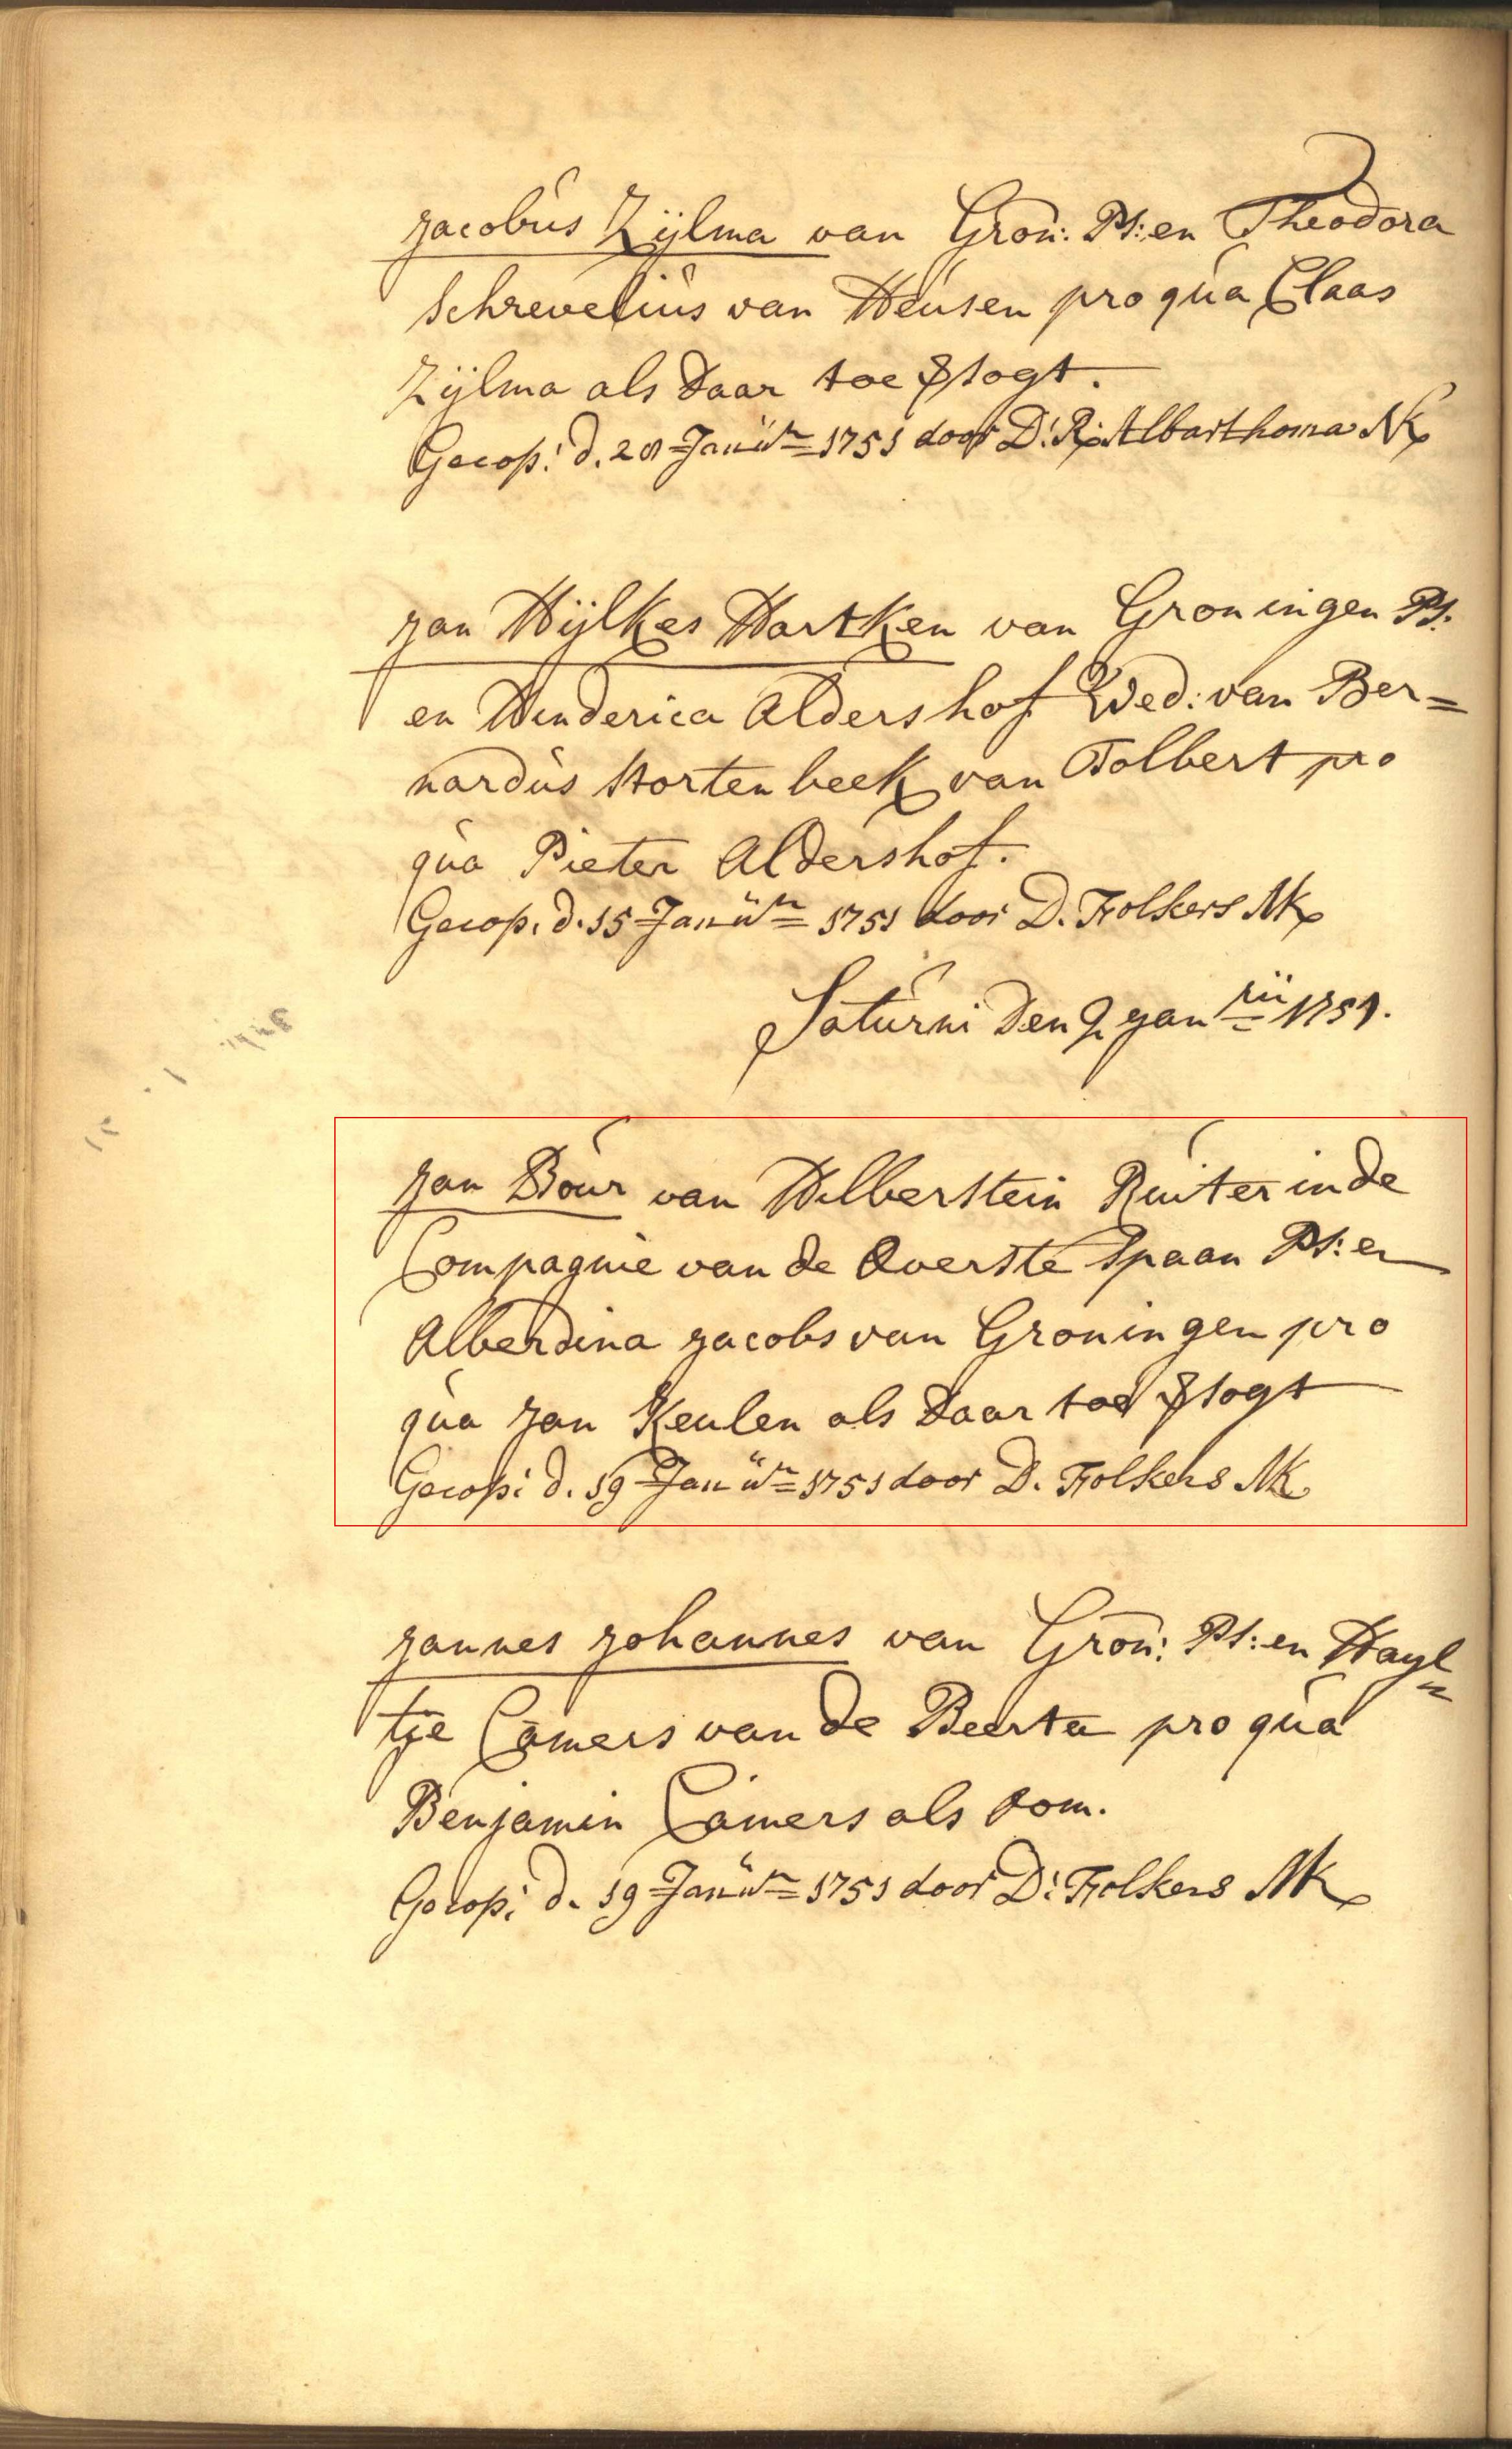 Jacobus Zijlma van Gron: Ps: en Theodora
Schrevelius van Heusen pro qua Claas
Zijlma als daar toe versogt.
Gecop: d. 28 Januar 1751 door D: R: Albarthoma NK
Jan Hijlkes Hartken van Groningen Ps:
en Hinderica Aldershof Wed: van Ber=
nardus Stortenbeek van Tolbert pro
qua Pieter Aldershof.
Gecop. d. 15 Januar 1751 door D. Folkers MK
Saturni den 2 Jan rii 1751.
Jan Bour van Hilberstein Ruiter in de
Compagnie van de Overste Spaan Ps: en
Alberdina Jacobs van Groningen pro
qua Jan Keulen als daar toe versogt
Gecop: d. 19 Januar 1751 door D. Folkers MK
Jannes Johannes van Gron: Ps: en Hayl=
tje Camers van de Beerta pro qua
Benjamin Camers als oom.
Gecop: d. 19 Januar 1751 door D: Folkers MK